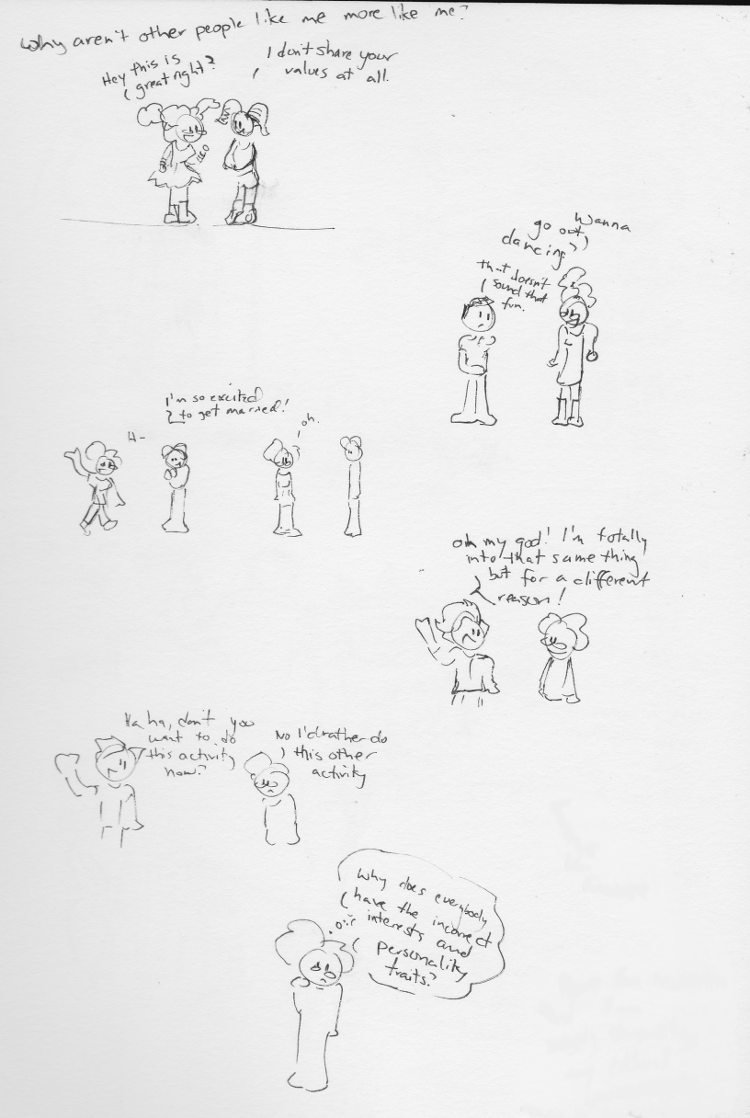 Why aren't other people like me more like me?
Hey this is
great right?
I don't share your
values at all.
Wanna
go out
dancing?
that doesn't
sound that
fun.
I'm so excited
to get married!
Hi-
oh.
oh my god! I'm totally
into that same thing
but for a different
reason!
Ha ha, don't you
want to do
this activity
now?
No I'd rather do
this other
activity
Why does everybody
have the incorrect
interests and
personality
traits?